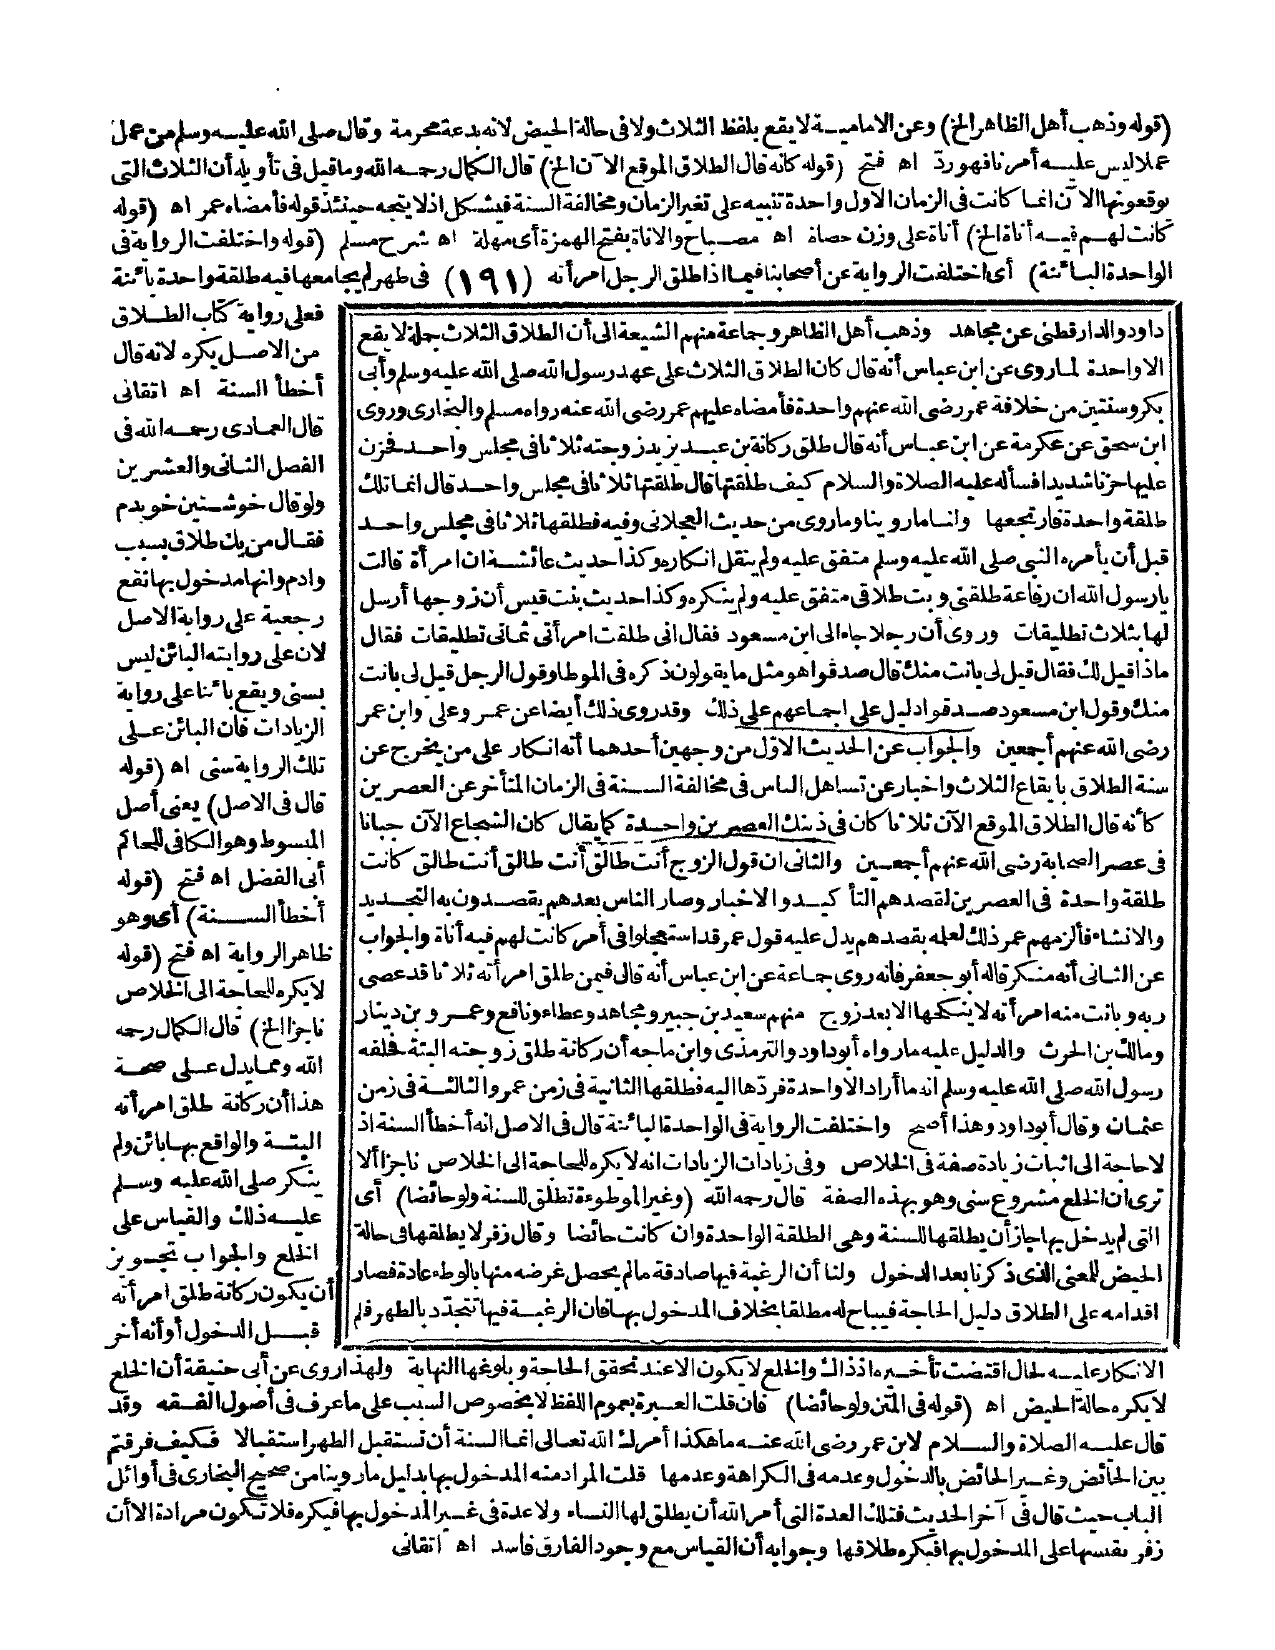 (قوله وذهب أهل الظاهر الخ) وعن الامامية لا يقع بلفظ الثلاث ولا فى حالة الحيض لانه بدعة محرمة وقال صلى الله عليه وسلم من عمل
عملا ليس عليه أمرنا فهو ردّ اه فتح (قوله كانه قال الطلاق الموقع الآن الخ) قال الكمال رحمه الله وما قيل فى تأويله أن الثلاث التى
يوقعونها الآن انما كانت فى الزمان الاول واحدة تنبيه على تغير الزمان ومخالفة السنة فيشكل اذ لا يتجه حينئذ قوله فأمضاه عمر اه (قوله
كانت لهم فيه أناة الخ) أناة على وزن حصاة اه مصباح والاناة بفتح الهمزة أى مهلة اه شرح مسلم (قوله واختلفت الرواية فى
الواحدة البائنة) أى اختلفت الرواية عن أصحابنا فيما اذا طلق الرجل امرأته (١٩١) فى طهر لم يجامعها فيه طلقة واحدة بائنة
فعلى رواية كتاب الطلاق
من الاصل يكره لانه قال
أخطأ السنة اه اتقانى
قال العمادى رحمه الله فى
الفصل الثانى والعشرين
ولو قال خوشتين خويدم
فقال من يك طلاق بسبب
وادم وانها مدخول بها تقع
رجعية على رواية الاصل
لان على روايته البائن ليس
بسنى ويقع بائنا على رواية
الزيادات فان البائن على
تلك الرواية سنى اه (قوله
قال فى الاصل) يعنى أصل
المبسوط وهو الكافى للحاكم
أبى الفضل اه فتح (قوله
أخطأ السنة) أى وهو
ظاهر الرواية اه فتح (قوله
لا يكره للحاجة الى الخلاص
ناجزا الخ) قال الكمال رحمه
الله ومما يدل على صحة
هذا أن ركانة طلق امرأته
البتة والواقع بها بائن ولم
ينكر صلى الله عليه وسلم
عليه ذلك والقياس على
الخلع والجواب تجويز
أن يكون ركانة طلق امرأته
قبل الدخول أو أنه أخر
داود والدارقطنى عن مجاهد وذهب أهل الظاهر وجماعة منهم الشيعة الى أن الطلاق الثلاث جملة لا يقع
الا واحدة لما روى عن ابن عباس أنه قال كان الطلاق الثلاث على عهد رسول الله صلى الله عليه وسلم وأبى
بكر وسنتين من خلافة عمر رضى الله عنهم واحدة فأمضاه عليهم عمر رضى الله عنه رواه مسلم والبخارى وروى
ابن سحق عن عكرمة عن ابن عباس أنه قال طلق ركانة بن عبد يزيد زوجته ثلاثا فى مجلس واحد فحزن
عليها حزنا شديدا فسأله عليه الصلاة والسلام كيف طلقتها قال طلقتها ثلاثا فى مجلس واحد قال انما تلك
طلقة واحدة فارتجعها ولنا ما روينا وما روى من حديث العجلانى وفيه فطلقها ثلاثا فى مجلس واحد
قبل أن يأمره النبى صلى الله عليه وسلم متفق عليه ولم ينقل انكاره وكذا حديث عائشة ان امرأة قالت
يا رسول الله ان رفاعة طلقنى وبت طلاقى متفق عليه ولم ينكره وكذا حديث بنت قيس أن زوجها أرسل
لها بثلاث تطليقات وروى أن رجلا جاء الى ابن مسعود فقال انى طلقت امرأتى ثمانى تطليقات فقال
ماذا قيل لك فقال قيل لى بانت منك قال صدقوا هو مثل ما يقولون ذكره فى الموطا وقول الرجل قيل لى بانت
منك وقول ابن مسعود صدقوا دليل على اجماعهم على ذلك وقد روى ذلك أيضا عن عمر وعلى وابن عمر
رضى الله عنهم أجمعين والجواب عن الحديث الاوّل من وجهين أحدهما أنه انكار على من يخرج عن
سنة الطلاق بايقاع الثلاث واخبار عن تساهل الناس فى مخالفة السنة فى الزمان المتأخر عن العصرين
كأنه قال الطلاق الموقع الآن ثلاثا كان فى ذينك العصرين واحدة كما يقال كان الشجاع الآن جبانا
فى عصر الصحابة رضى الله عنهم أجمعين والثانى ان قول الزوج أنت طالق أنت طالق أنت طالق كانت
طلقة واحدة فى العصرين لقصدهم التأكيد والاخبار وصار الناس بعدهم يقصدون به التجديد
والانشاء فألزمهم عمر ذلك لعلمه بقصدهم يدل عليه قول عمر قد استعجلوا فى أمر كانت لهم فيه أناة والجواب
عن الثانى أنه منكر قاله أبو جعفر فانه روى جماعة عن ابن عباس أنه قال فيمن طلق امرأته ثلاثا قد عصى
ربه وبانت منه امرأته لا ينكحها الا بعد زوج منهم سعيد بن جبير ومجاهد وعطاء ونافع وعمرو بن دينار
ومالك بن الحرث والدليل عليه ما رواه أبو داود والترمذى وابن ماجه أن ركانة طلق زوجته البتة فحلفه
رسول الله صلى الله عليه وسلم انه ما أراد الا واحدة فردّها اليه فطلقها الثانية فى زمن عمر والثالثة فى زمن
عثمان وقال أبو داود وهذا أصح واختلفت الرواية فى الواحدة البائنة قال فى الاصل انه أخطأ السنة اذ
لا حاجة الى اثبات زيادة صفة فى الخلاص وفى زيادات الزيادات انه لا يكره للحاجة الى الخلاص ناجزا ألا
ترى ان الخلع مشروع سنى وهو بهذه الصفة قال رحمه الله (وغير الموطوءة تطلق للسنة ولو حائضا) أى
التى لم يدخل بها جاز أن يطلقها للسنة وهى الطلقة الواحدة وان كانت حائضا وقال زفر لا يطلقها فى حالة
الحيض للمعنى الذى ذكرنا بعد الدخول ولنا أن الرغبة فيها صادقة ما لم يحصل غرضه منها بالوطء عادة فصار
اقدامه على الطلاق دليل الحاجة فيباح له مطلقا بخلاف المدخول بها فان الرغبة فيها تتجدّد بالطهر فلم
الانكار عليه لحال اقتضت تأخيره اذ ذاك والخلع لا يكون الا عند تحقق الحاجة وبلوغها النهاية ولهذا روى عن أبى حنيفة أن الخلع
لا يكره حالة الحيض اه (قوله فى المتن ولو حائضا) فان قلت العبرة بعموم اللفظ لا بخصوص السبب على ما عرف فى أصول الفقه وقد
قال عليه الصلاة والسلام لابن عمر رضى الله عنه ما هكذا أمرك الله تعالى انما السنة أن تستقبل الطهر استقبالا فكيف فرقتم
بين الحائض وغير الحائض بالدخول وعدمه فى الكراهة وعدمها قلت المراد منه المدخول بها بدليل ما روينا من صحيح البخارى فى أوائل
الباب حيث قال فى آخر الحديث فتلك العدة التى أمر الله أن يطلق لها النساء ولا عدة فى غير المدخول بها فيكره فلا تكون مرادة الا أن
زفر يقيسها على المدخول بها فيكره طلاقها وجوابه أن القياس مع وجود الفارق فاسد اه اتقانى